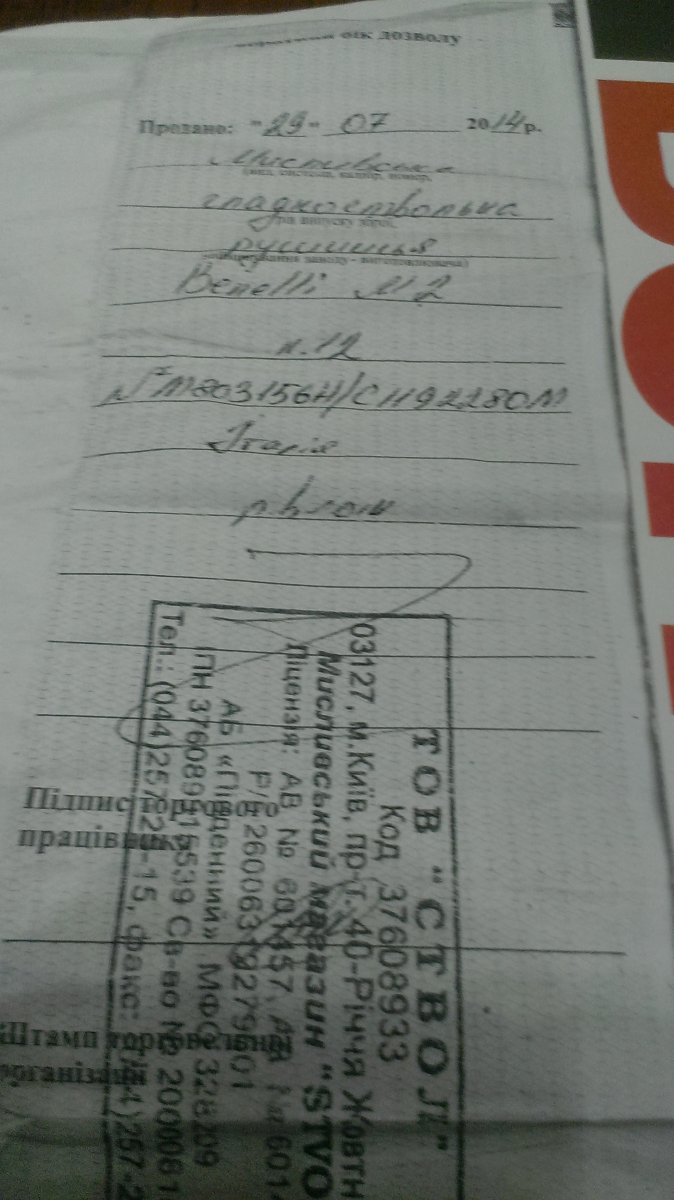 бік дозволу
Продано: "29" 07 2014 р.
Мисливська
(вид, система, калібр, номер,
гладкоствольна
рік випуску зброї,
рушниця
заводу - виготовлювача)
Benelli M2
к.12
№ M803156H/CH92280M
Італія
Підпис торгового
працівника
Штамп торговельної
організації
ТОВ "СТВОЛ"
Код 37608933
03127, м.Київ, пр-т. 40-Річчя Жовтн
Мисливський магазин "STVO
Ліцензія: АВ № 601457, АВ № 6014
АБ «Південний» МФО 328209
ІПН 376089 Св-во № 2000081
Тел.: (044)257-2 -15, факс: (044)257-2